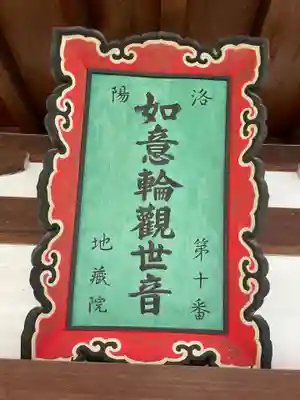 洛陽
第十番
如意輪觀世音
地蔵院